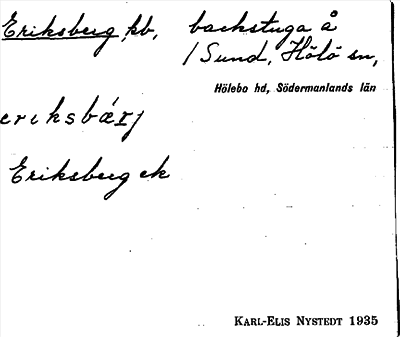 Eriksberg, backstuga å
/Sund, Hölö sn,
Hölebo hd, Södermanlands län
Eriksberg ek
KARL-ELIS NYSTEDT 1935